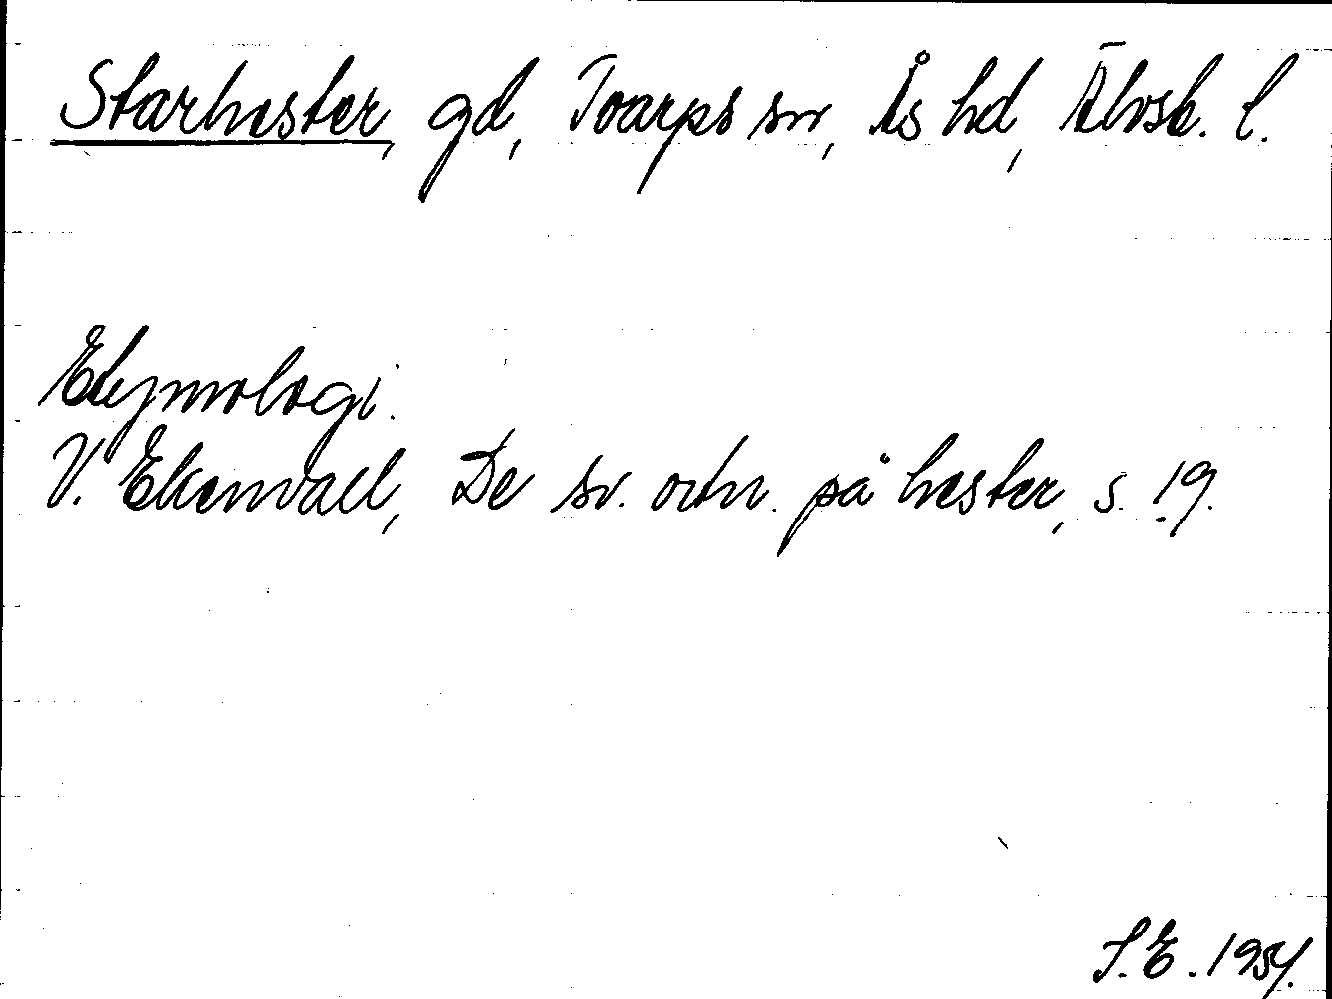 Starhester, gd, Toarps sn, Ås hd, Älvsb. l.
Etymologi.
V. Ekenvall, De sv. ortn. på hester, s. 19.
S.E. 1954.